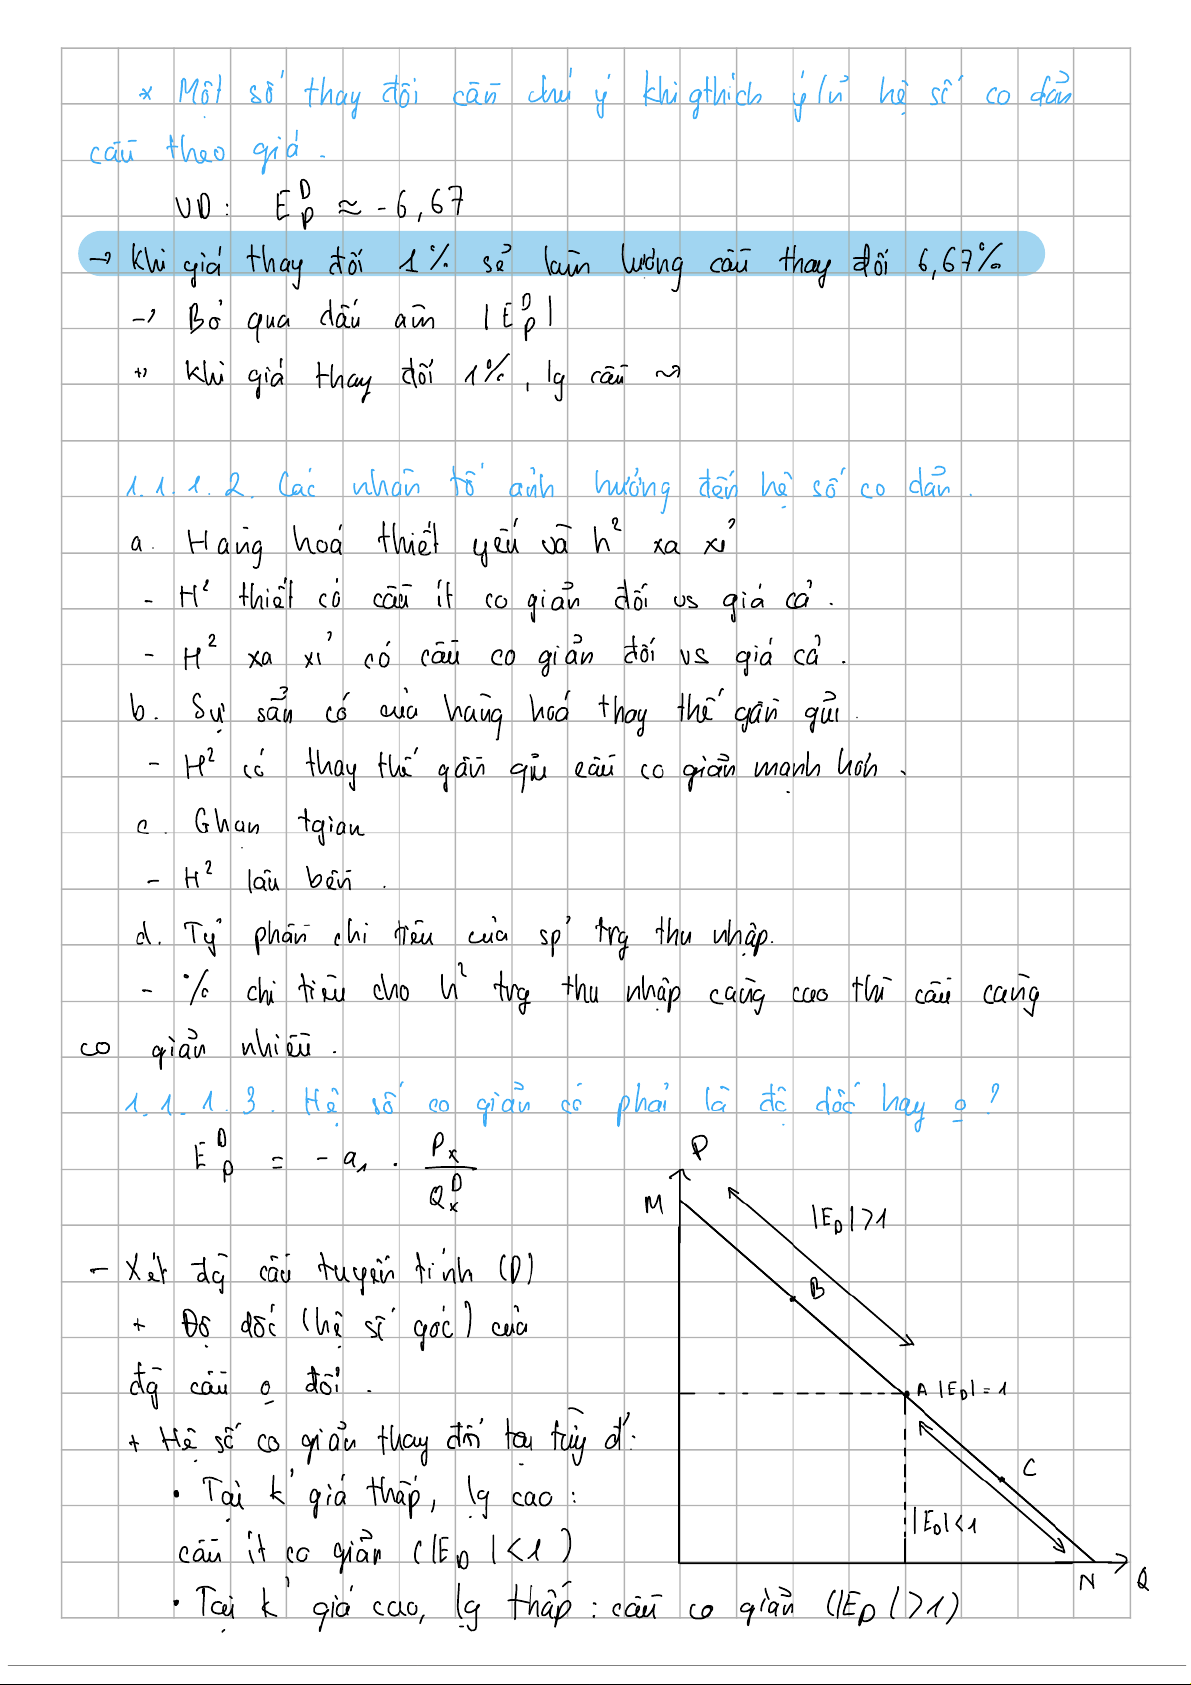 * Một số thay đổi cần chú ý khi gthích ý/n hệ số co dãn
cầu theo giá.
VD: E^D_P ≈ -6,67
→ Khi giá thay đổi 1% sẽ làm lượng cầu thay đổi 6,67%
→ Bỏ qua dấu âm |E^D_P|
→ Khi giá thay đổi 1%, lg cầu ~>
1.1.1.2. Các nhân tố ảnh hưởng đến hệ số co dãn.
a. Hàng hoá thiết yếu và h² xa xỉ
- H² thiết có cầu ít co giãn đối vs giá cả.
- H² xa xỉ có cầu co giãn đối vs giá cả.
b. Sự sẵn có của hàng hoá thay thế gần gũi.
- H² có thay thế gần gũi cầu co giãn mạnh hơn.
c. Ghạn tgian
- H² lâu bền.
d. Tỷ phần chi tiêu của sp' trg thu nhập.
- % chi tiêu cho h² trg thu nhập càng cao thì cầu càng
co giãn nhiều.
1.1.1.3. Hệ số co giãn có phải là độ dốc hay o?
E^D_P = - a₁ . P_x / Q^D_x
- Xét đg cầu tuyến tính (D)
+ Độ dốc (hệ số góc) của
đg cầu o đổi.
+ Hệ số co giãn thay đổi tại tùy đ':
• Tại k' giá thấp, lg cao:
cầu ít co giãn (|E_D| < 1)
• Tại k' giá cao, lg thấp: cầu co giãn (|E_D| > 1)
P
M
|E_D| > 1
B
A |E_D| = 1
C
|E_D| < 1
N
Q